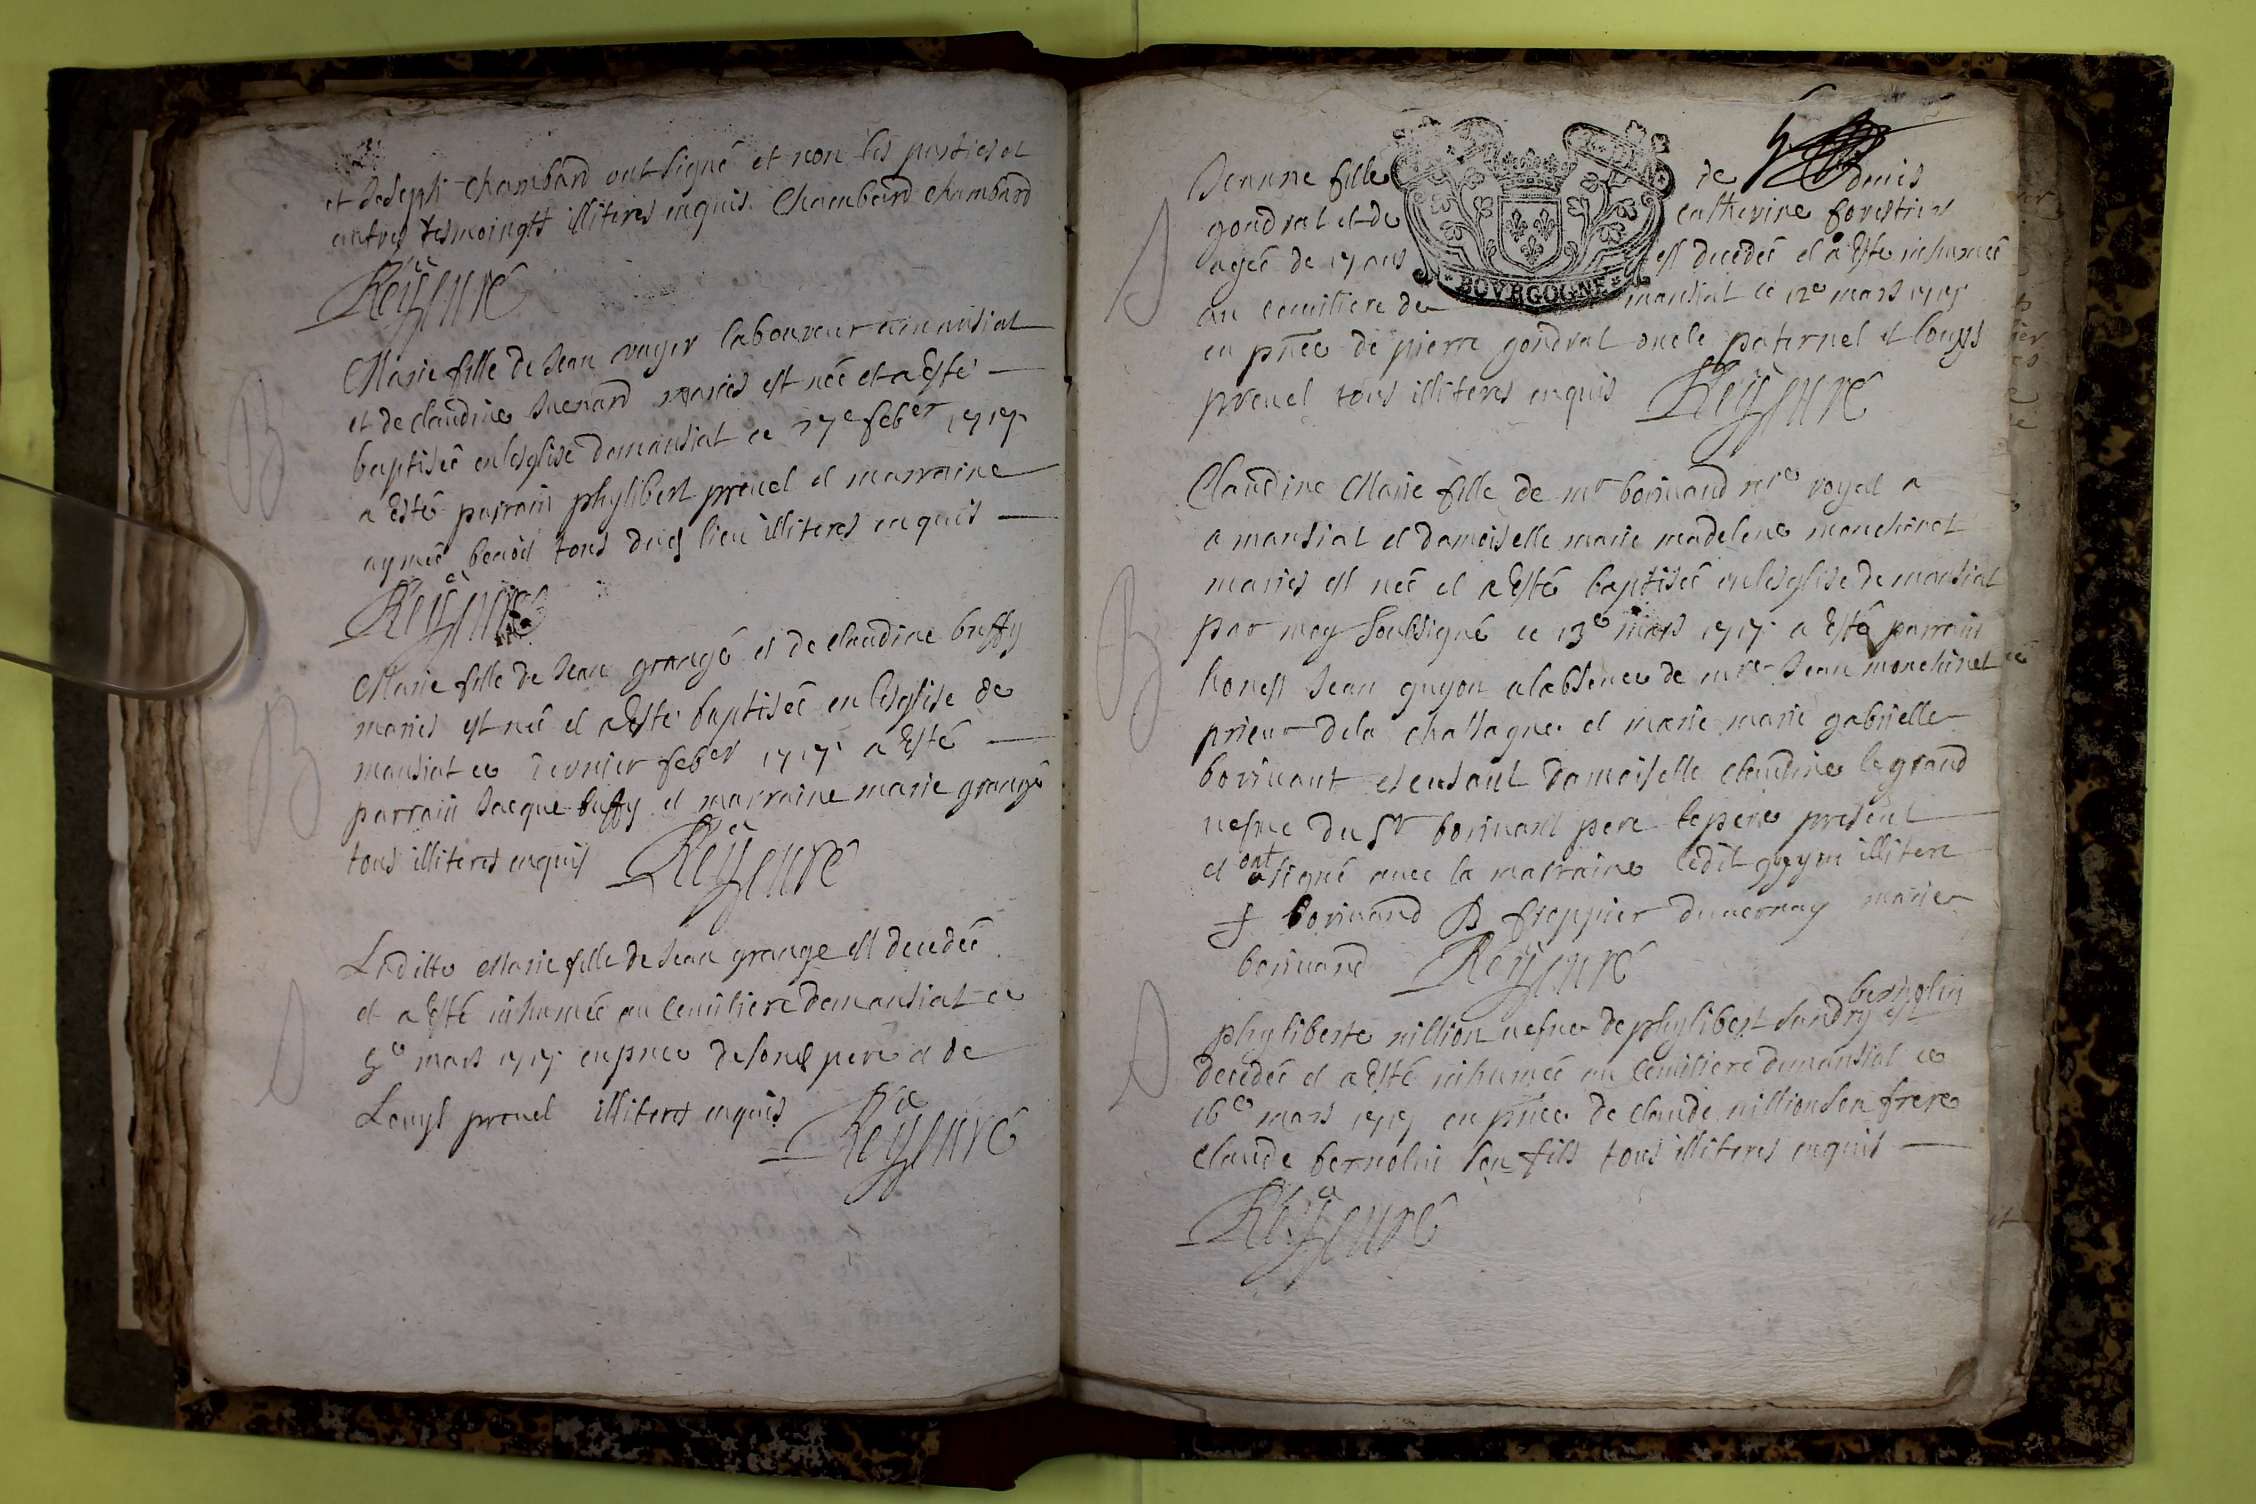 et Joseph Chambard ont signé et non les parties et
autres tesmoingts illiteres enquis. Chambard Chambard
Reÿ curé
Marie fille de Jean vuyer laboureur a mansiat
et de claudine Juenard mariés est née et a Esté
baptiseé en lesglise de mansiat ce 27e feber 1717
a Esté parrain phylibert preuel et marraine
aymeé benoit tous dud lieu illiteres enquis
Reÿ curé
Marie fille de Jean grangé et de claudine buffy
mariés est neé et a Esté baptiseé en lesglise de
mansiat ce dernier feber 1717 a Esté
parrain Jacque buffy et marraine marie grangé
tous illiteres enquis Reÿ curé
Laditte Marie fille de Jean grange est decedeé
et a Esté inhumeé au Cemitiere de mansiat ce
mars 1717 en pnce de sond pere et de
Louys preuel illiteres enquis Reÿ curé
Jeanne fille de denis
gondrat et de catherine forestier
ageé de 17 ans est decedeé et a Esté inhumeé
au cemitiere de mansiat ce 12e mars 1717
en pnce de pierre gondrat oncle paternel et louys
preuel tous illiteres enquis Reÿ curé
BOVRGOGNE
Claudine Marie fille de mr boriuand nre royal a
a mansiat et damoiselle marie madelene monchinet
mariés est neé et a Esté baptiseé en lesglise de mansiat
par moy soubsigné ce 13e mars 1717 a Esté parrain
honest Jean guyon a labsence de mre Jean monchinet
prieur de la chassagne et marie marie gabrielle
boriuant et ensaut damoiselle claudine legrand
uefue du Sr boriuant pere le pere present
et ont signé auec la marraine ledit guyon illitere
boriuand B froppier duuernay marie
boriuand Reÿ curé
bernolin
phyliberte nillion uefue de phylibert Landry est
decedeé et a Esté inhumeé au Cemitiere de mansiat ce
16e mars 1717 en pnce de claude nillion son frere
claude bernolin son fils tous illiteres enquis
Reÿ curé